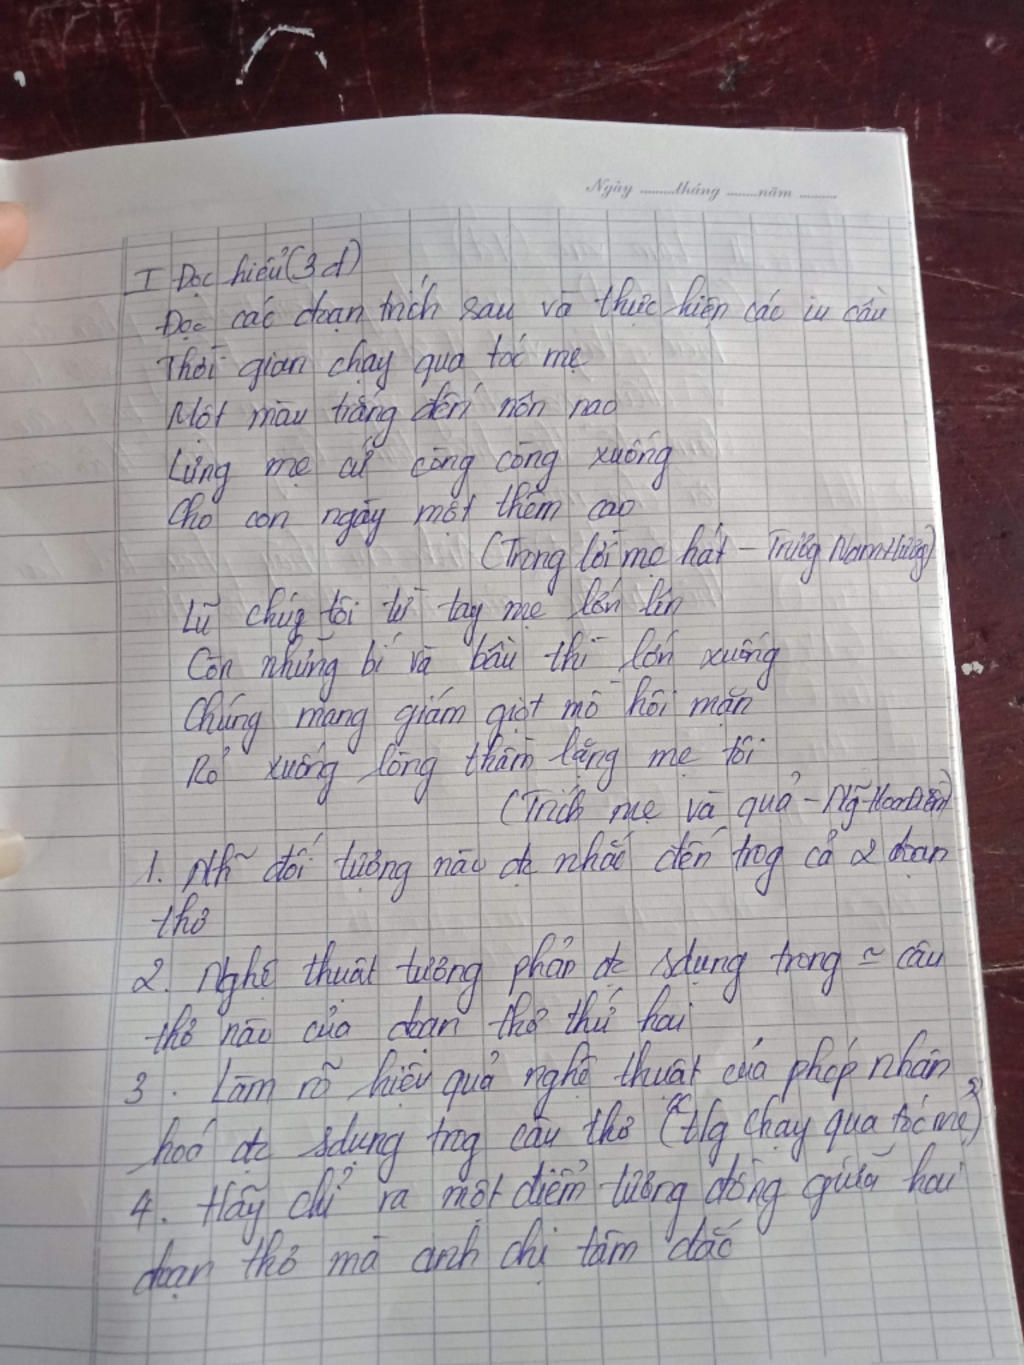 Ngày ........tháng .......năm ........
I Đọc hiểu (3 đ)
Đọc các đoạn trích sau và thực hiện các iu cầu
Thời gian chạy qua tóc mẹ
Một màu trắng đến nôn nao
Lưng mẹ cứ còng còng xuống
Cho con ngày một thêm cao
(Trong lời mẹ hát - Trươg Nam Hươg)
Lũ chúg tôi từ tay mẹ lớn lên
Còn những bí và bầu thì lớn xuống
Chúng mang giám giọt mồ hôi mặn
Rỏ xuống lòng thầm lặng mẹ tôi
(Trích mẹ và quả - Ng~ Khoa Điềm)
1. Nh~ đối tượng nào đc nhắc đến trog cả 2 đoạn
thơ
2. Nghệ thuật tương phản đc sdụng trong ~ câu
thơ nào của đoạn thơ thứ hai
3. Làm rõ hiệu quả nghệ thuật của phép nhân
hoá đc sdụng trog câu thơ ("tlg chạy qua tóc mẹ")
4. Hãy chỉ ra một điểm tương đồng giữa hai
đoạn thơ mà anh chị tâm đắc